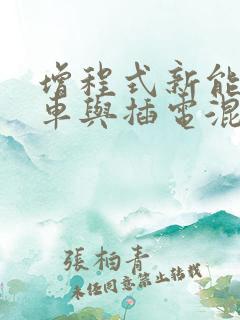 增程式新能
車與插電混
張柏青
未经同意禁止转载